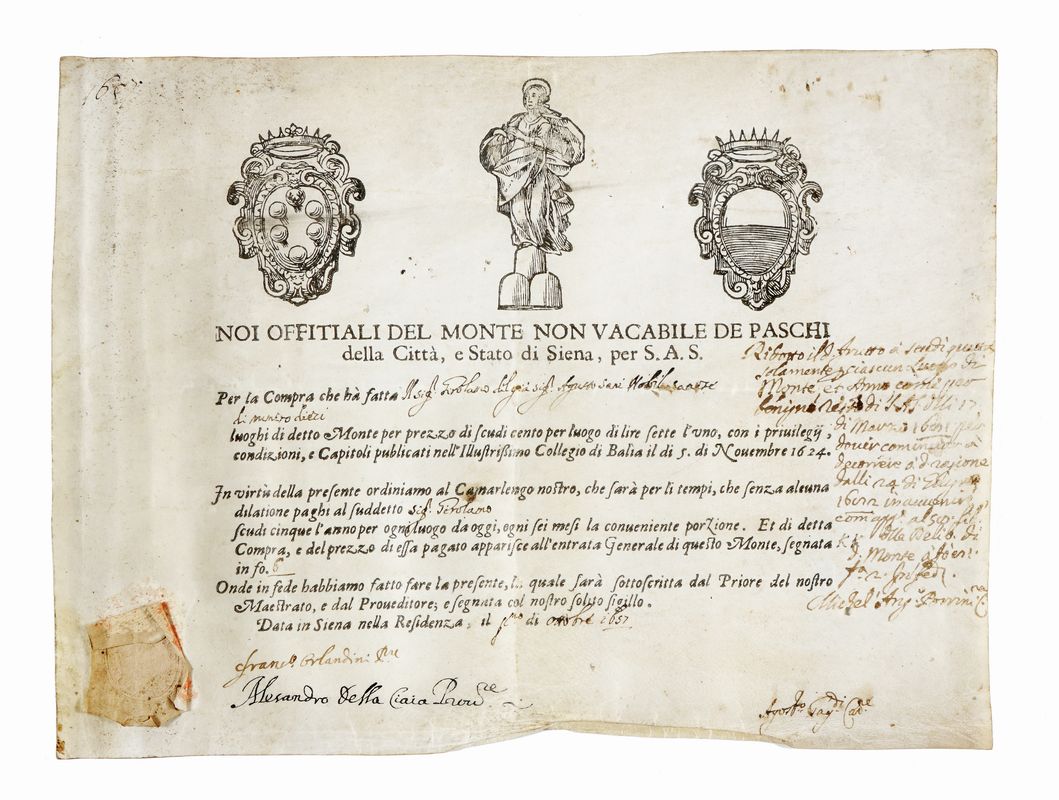 1657
NOI OFFITIALI DEL MONTE NON VACABILE DE PASCHI
della Città, e Stato di Siena, per S. A. S.
Per la Compra che hà fatta Il sig.r Girolamo del già sig.r Agusto Sani Nobil Sanese
di numero dieci
luoghi di detto Monte per prezzo di scudi cento per luogo di lire sette l'uno, con i priuilegij,
condizioni, e Capitoli publicati nell'Illustrißimo Collegio di Balìa il dì 5. di Nouembre 1624.
In virtù della presente ordiniamo al Camarlengo nostro, che sarà per li tempi, che senza alcuna
dilatione paghi al suddetto sig.r Girolamo
scudi cinque l'anno per ogni luogo da oggi, ogni sei mesi la conueniente porzione. Et di detta
Compra, e del prezzo di essa pagato apparisce all'entrata Generale di questo Monte, segnata K
in fo. 6
Onde in fede habbiamo fatto fare la presente, la quale sarà sottoscritta dal Priore del nostro
Maestrato, e dal Proueditore, e segnata col nostro solito sigillo.
Data in Siena nella Residenza, il p.mo di ottobre 1657
Franc.o Orlandini
Alesandro Della Ciaia Prou.re
frutto à scudi
solamente ciascun Luogo di
Monte et Anno come per
di S.A. 17
di Marzo 1691 per
douer cominciare à
decorrere a d.a ragione
dalli 24 di
1692
di
d. Monte